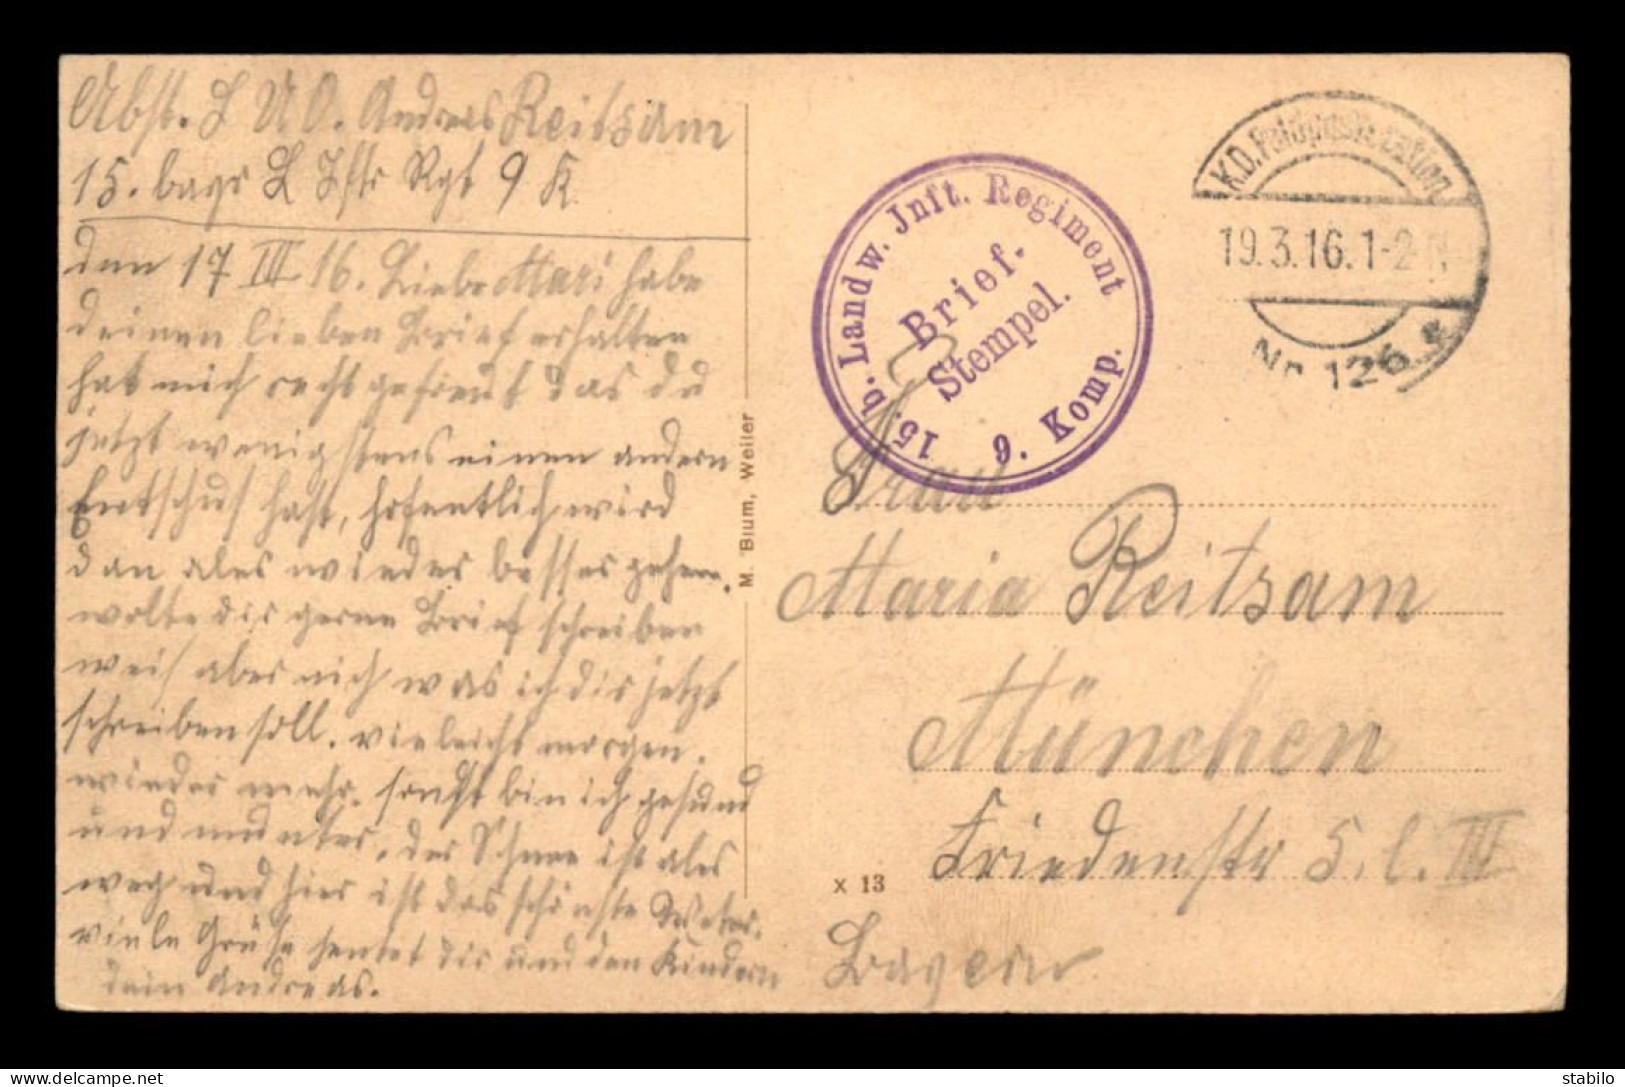 Abst. L U O. Andreas Reitsam
15. bayr L Iftr Rgt 9 K
den 17 III 16. Liebe Mari habe
deinen lieben Brief erhalten
hat mich recht gefreut das du
jetzt wenigstens einen andern
Entschus hast, hofentlich wird
dan ales wieder besser gehen.
wolte dir gerne Brief schreiben
weis aber nich was ich dir jetzt
schreiben soll. vieleicht morgen.
wieder mehr. sonst bin ich gesund
und munter, der Schnee ist ales
weg und hier ist das schönste Weter.
viele Grüse sentet dir und den Kindern
dein Andreas.
M. Blum, Weiler
15. b. Landw. Jnft. Regiment
Brief-
Stempel.
9. Komp.
K.D. Feldpoststation
19.3.16.1-2 N
Nr. 126 *
Frau
Maria Reitsam
München
Friedenstr 5. l. III
X 13
Bayern
stabilo